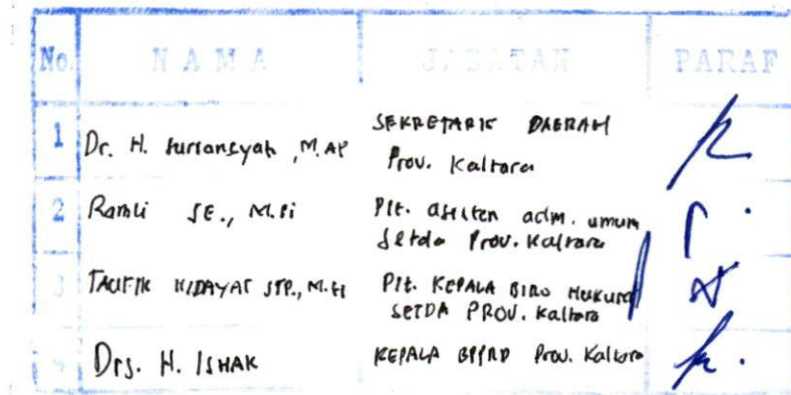 No. NAMA JABATAN PARAF
1 Dr. H. Suriansyah, M.AP SEKRETARIS DAERAH
Prov. Kaltara
2 Ramli SE., M.Si Plt. asisten adm. umum
Setda Prov. Kaltara
3 TAUFIK HIDAYAT STP., M.Si Plt. KEPALA BIRO HUKUM
SETDA PROV. Kaltara
4 Drs. H. ISHAK KEPALA BPPRD Prov. Kaltara